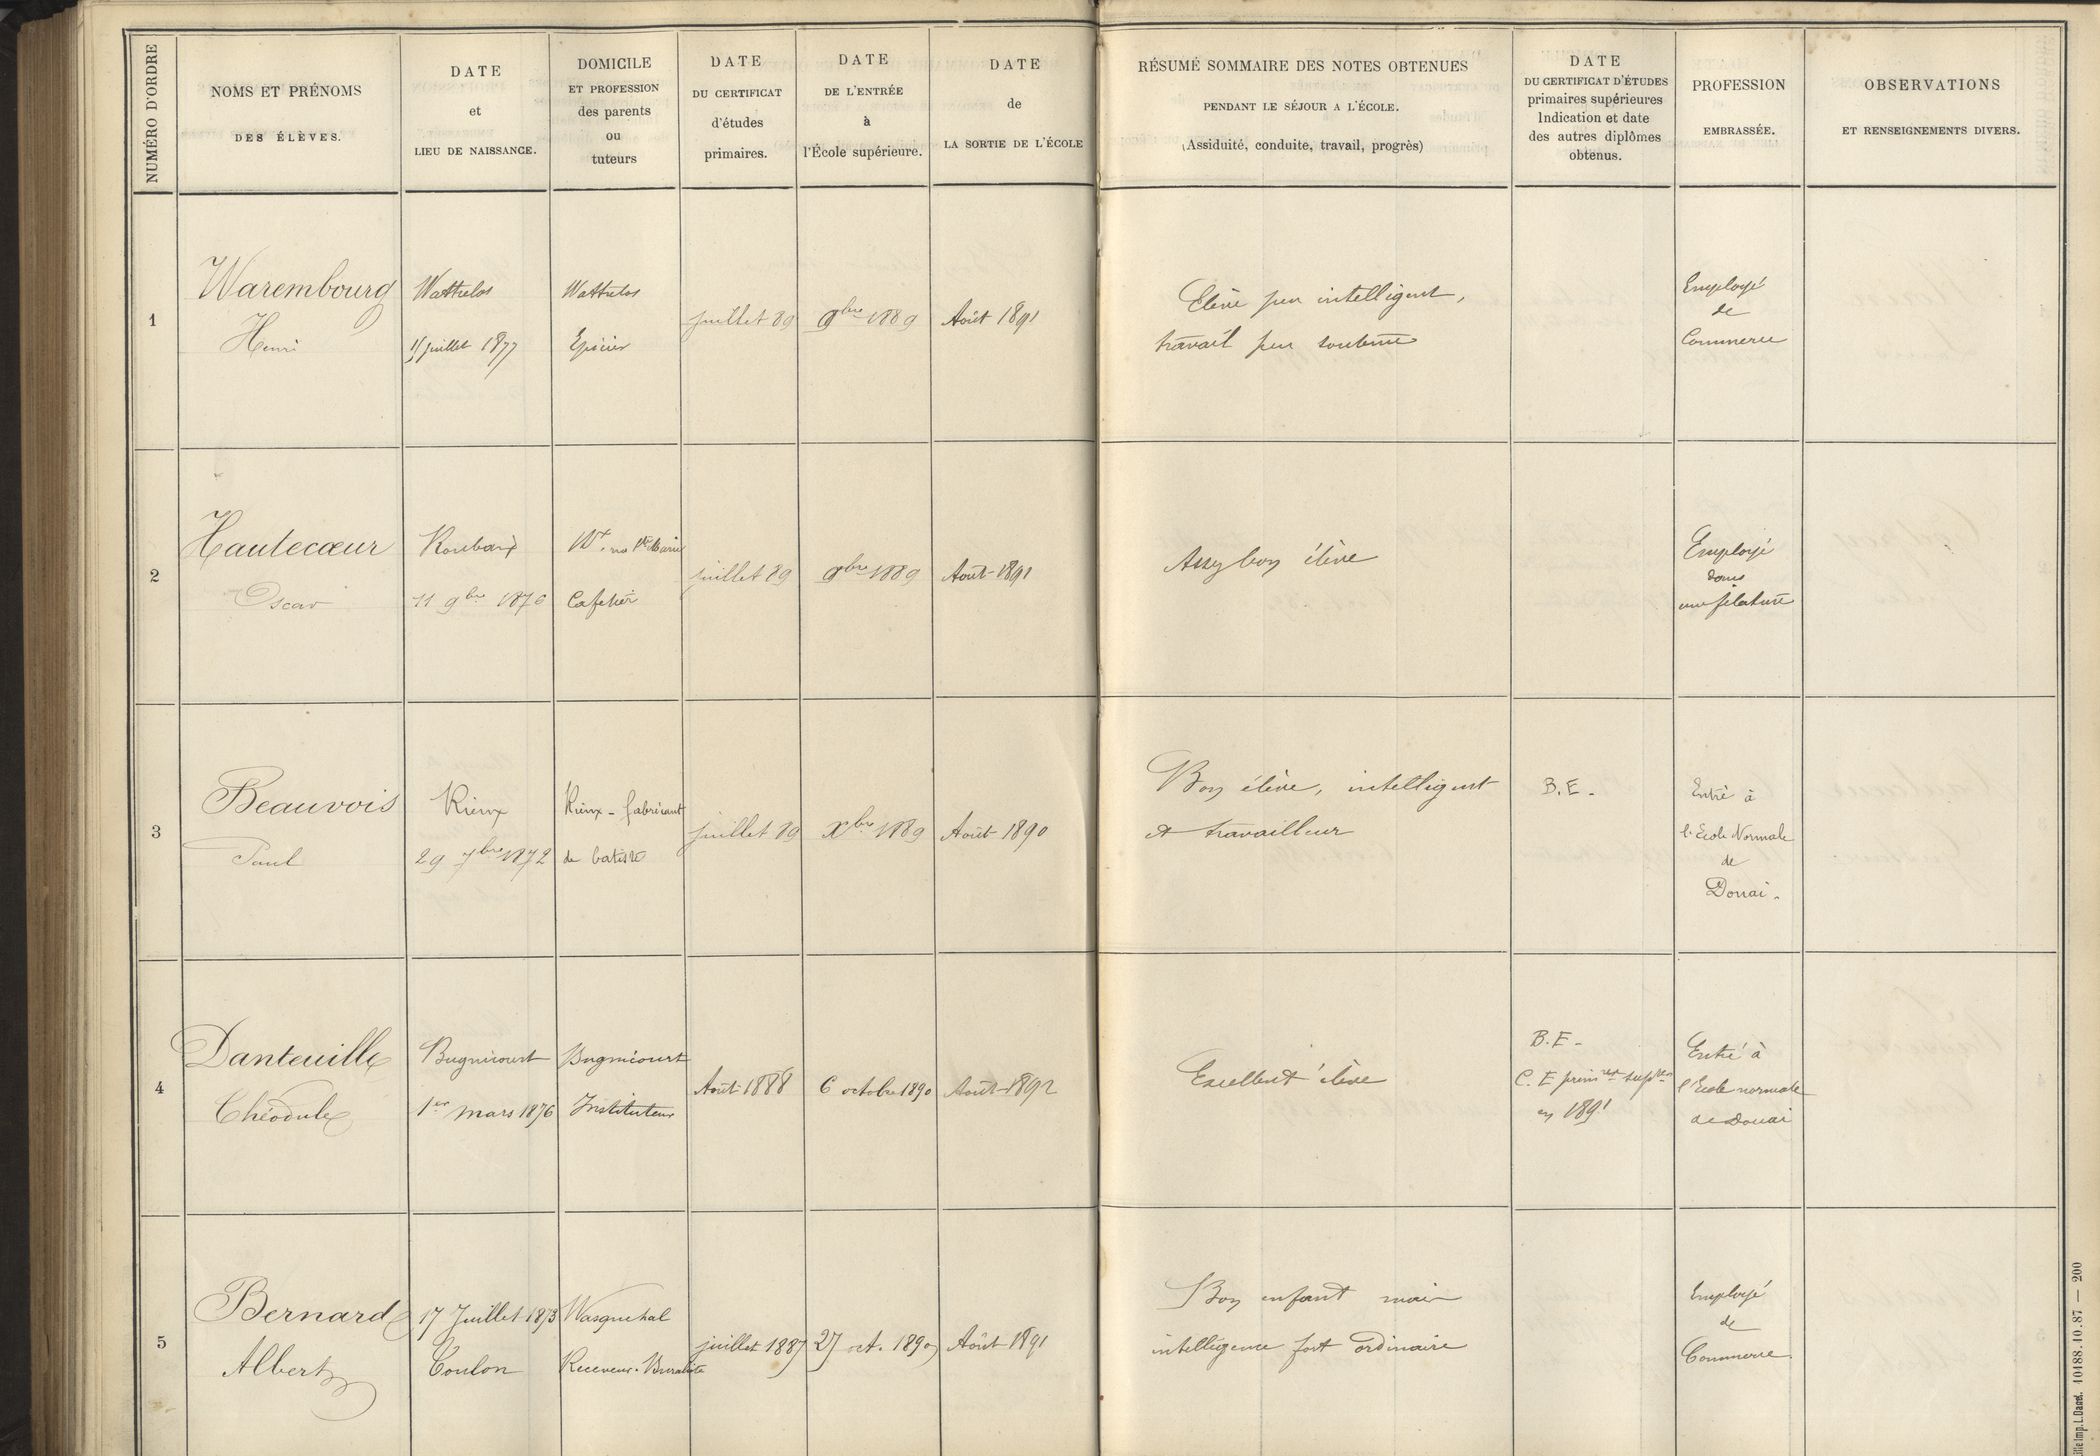 NUMÉRO D'ORDRE
NOMS ET PRÉNOMS
DES ÉLÈVES.
DATE
et
LIEU DE NAISSANCE.
DOMICILE
ET PROFESSION
des parents
ou
tuteurs
DATE
DU CERTIFICAT
d'études
primaires.
DATE
DE L'ENTRÉE
à
l'École supérieure.
DATE
de
LA SORTIE DE L'ÉCOLE
RÉSUMÉ SOMMAIRE DES NOTES OBTENUES
PENDANT LE SÉJOUR A L'ÉCOLE.
(Assiduité, conduite, travail, progrès)
DATE
DU CERTIFICAT D'ÉTUDES
primaires supérieures
Indication et date
des autres diplômes
obtenus.
PROFESSION
EMBRASSÉE.
OBSERVATIONS
ET RENSEIGNEMENTS DIVERS.
1
Warembourg
Henri
Wattrelos
juillet 1877
Wattrelos
Epicier
juillet 89
bre 1889
Août 1891
Elève peu intelligent,
travail peu soutenu
Employé
de
Commerce
2
Hautecœur
Oscar
Roubaix
11 9bre 1876
Cafetier
juillet 89
bre 1889
Août 1891
Assez bon élève
Employé
dans
une filature
3
Beauvois
Paul
Rieux
29 7bre 1872
Rieux - fabricant
de batiste
juillet 89
Xbre 1889
Août 1890
Bon élève, intelligent
et travailleur
B.E.
Entré à
l'Ecole Normale
de
Douai.
4
Danteuille
Théodule
Bugnicourt
1er mars 1876
Bugnicourt
Instituteur
Août 1888
6 octobre 1890
Août 1892
Excellent élève
B.E.
C. E prim res supres
en 1891
Entré à
l'Ecole normale
de Douai
5
Bernard
Albert
17 Juillet 1873
Toulon
Wasquehal
Receveur-Buraliste
juillet 1887
27 oct. 1890
Août 1891
Bon enfant mais
intelligence fort ordinaire
Employé
de
Commerce
Imp. L. Danel. 10488.10.87 — 200